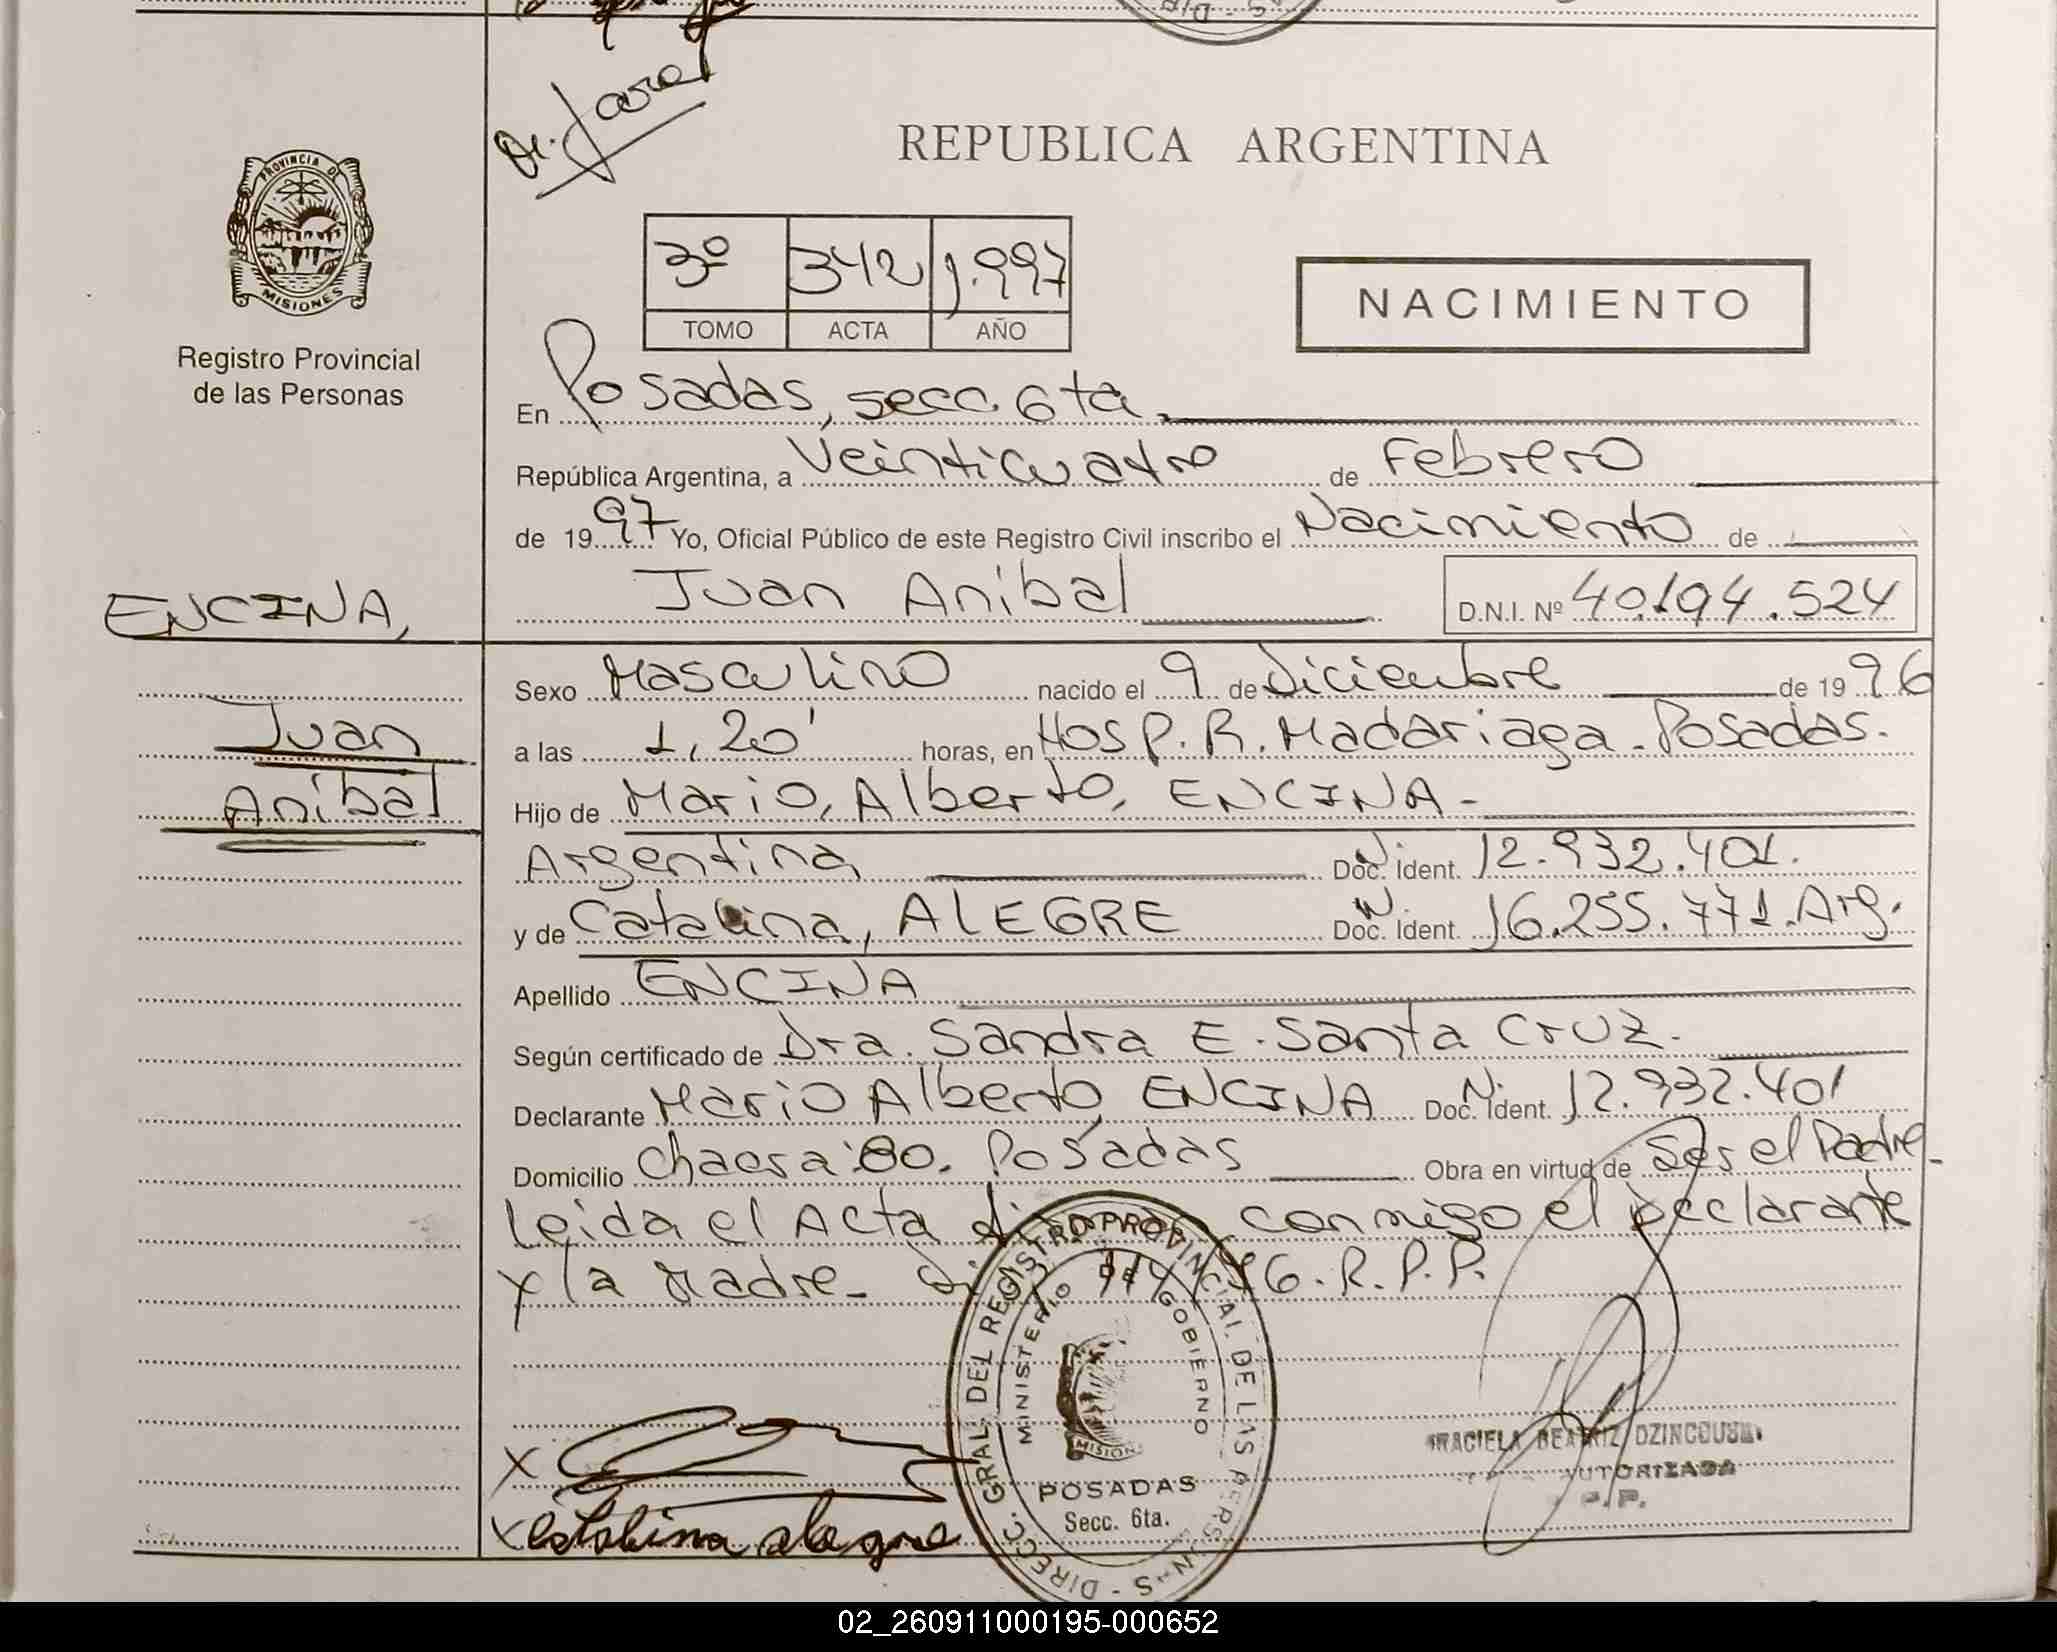 REPUBLICA ARGENTINA
PROVINCIA DE
MISIONES
Registro Provincial
de las Personas
3º 342 1.997
TOMO ACTA AÑO
NACIMIENTO
En Posadas, secc. 6ta.
República Argentina, a Veinticuatro de Febrero
de 1997 Yo, Oficial Público de este Registro Civil inscribo el Nacimiento de
Juan Anibal D.N.I. Nº 40.194.524
ENCINA,
Juan
Anibal
Sexo Masculino nacido el 9 de diciembre de 1996
a las 1,20' horas, en Hosp. R. Madariaga. Posadas.
Hijo de Mario, Alberto, ENCINA-
Argentina Doc. Ident. 12.932.401.
y de Catalina, ALEGRE Doc. Ident. 16.255.771. Arg.
Apellido ENCINA
Según certificado de Dra. Sandra E. Santa Cruz.
Declarante Mario Alberto, ENCINA Doc. Ident. 12.932.401
Domicilio Chacra 80. Posadas Obra en virtud de Ser el Padre-
Leida el Acta conmigo el declarante
y la Madre- G.R.P.P.
DIRECC. GRAL. DEL REGISTRO PROVINCIAL DE LAS PERSONAS
MINISTERIO DE GOBIERNO
MISIONES
POSADAS
Secc. 6ta.
GRACIELA BEATRIZ
AUTORIZADA
P.P.
X
X Catalina Alegre
02_260911000195-000652